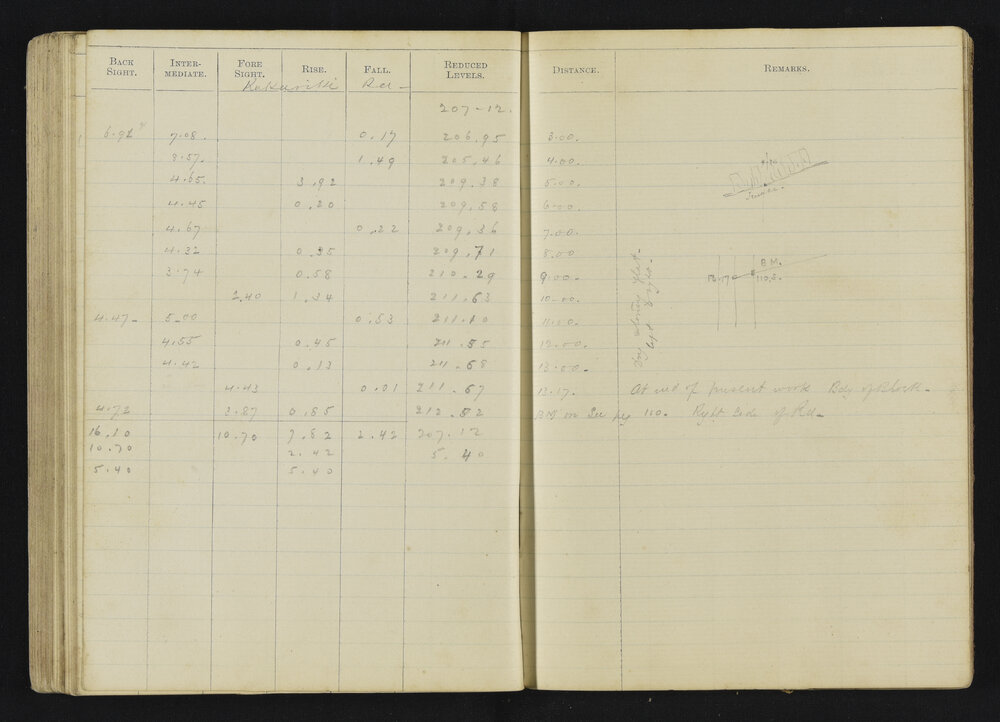 BACK SIGHT. INTER-MEDIATE. FORE SIGHT. RISE. FALL. REDUCED LEVELS. DISTANCE. REMARKS.
Rd -
207-12.
6.91 7.08. 0.17 206.95 3.00.
8.57. 1.49 205.46 4.00.
4.65. 3.92 209.38 5.00.
4.45 0.20 209.58 6.00.
4.67 0.22 209.36 7.00.
4.32 0.35 209.71 8.00
3.74 0.58 210.29 9.00.
2.40 1.34 211.63 10.00.
4.47- 5.00 0.53 211.10 11.00.
4.55 0.45 211.55 12.00.
4.42 0.13 211.68 13.00.
4.43 0.01 211.67 13.17. At end of present work Bdy of Block-
4.72 3.87 0.85 212.52 BM on peg 110. Right Side of Rd-
16.10 10.70 7.82 2.42 207.12
10.70 2.42 5.40
5.40 5.40
B M.
13.17
110.